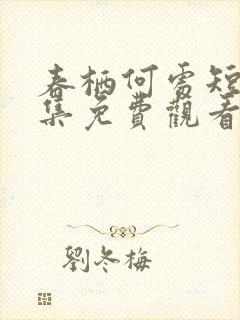 春栖何雪短
集免費觀看
劉冬梅